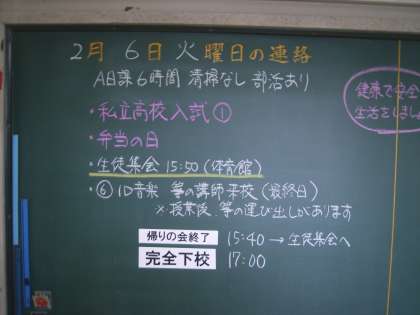 2月 6日 火曜日の連絡
A日課6時間 清掃なし 部活あり
健康で安全
生活をしましょ
・私立高校入試①
・弁当の日
・生徒集会 15:50(体育館)
・⑥ 1D音楽 箏の講師来校(最終日)
※授業後、箏の運び出しがあります
帰りの会終了 15:40 → 生徒集会へ
完全下校 17:00